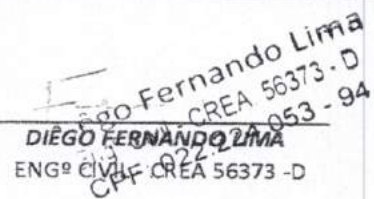 Diêgo Fernando Lima
CREA 56373 - D
CPF 022.224.053 - 94
DIÊGO FERNANDO LIMA
ENGº CIVIL CREA 56373 -D